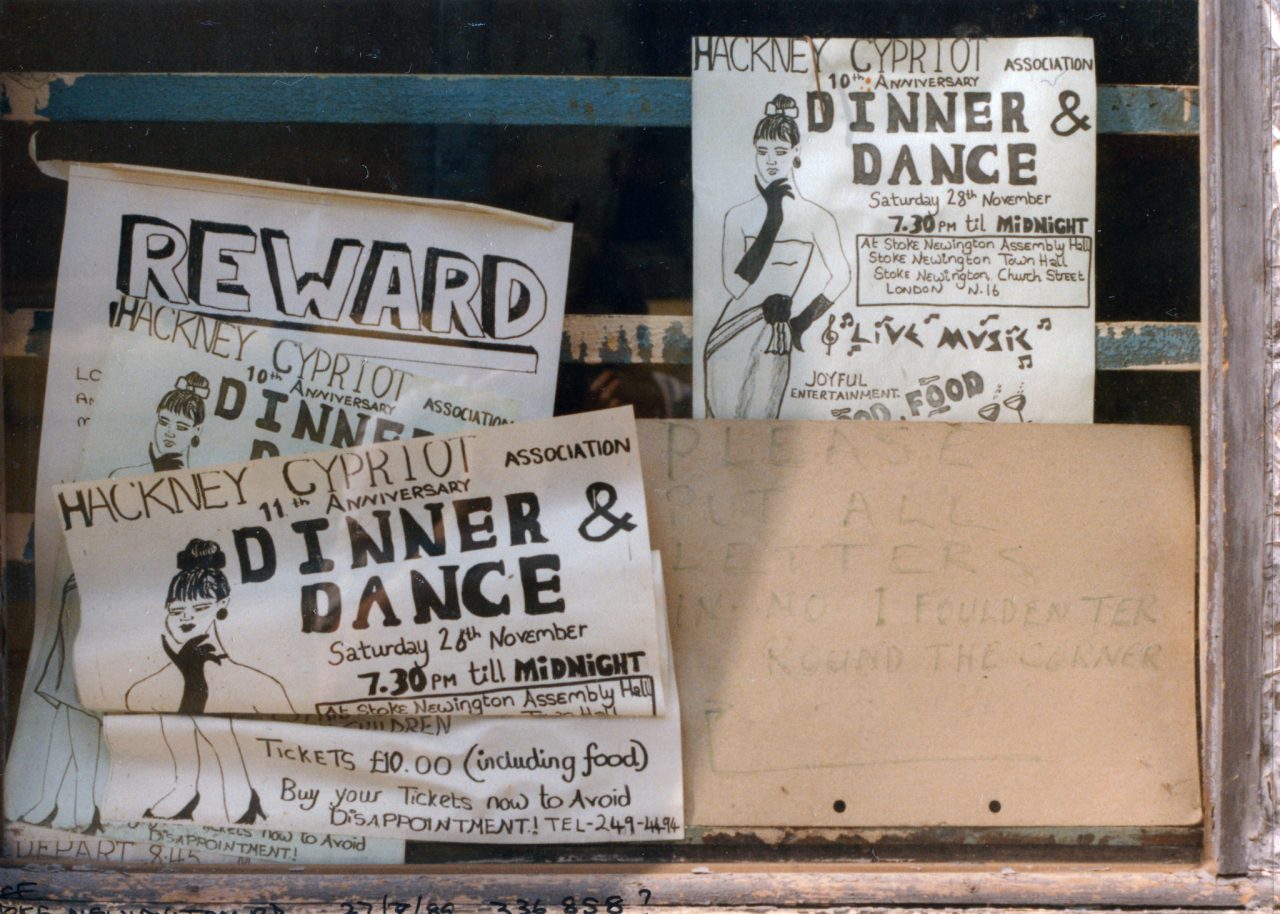 REWARD
HACKNEY CYPRIOT
10th ANNIVERSARY ASSOCIATION
HACKNEY CYPRIOT ASSOCIATION
11th ANNIVERSARY
DINNER &
DANCE
Saturday 26th November
7.30 PM till MIDNIGHT
At Stoke Newington Assembly Hall
Town Hall
CHILDREN
TICKETS £10.00 (including food)
Buy your Tickets now to Avoid
DISAPPOINTMENT! TEL-249-4494
Tickets now to Avoid
DISAPPOINTMENT!
DEPART 8.45
HACKNEY CYPRIOT ASSOCIATION
10th ANNIVERSARY
DINNER &
DANCE
Saturday 28th November
7.30 PM til MIDNIGHT
At Stoke Newington Assembly Hall
Stoke Newington Town Hall
Stoke Newington, Church Street
LONDON N.16
LIVE MUSIC
JOYFUL
ENTERTAINMENT.
FOOD
PLEASE
PUT ALL
LETTERS
IN NO 1 FOULDEN TER
ROUND THE CORNER
336 858 ?